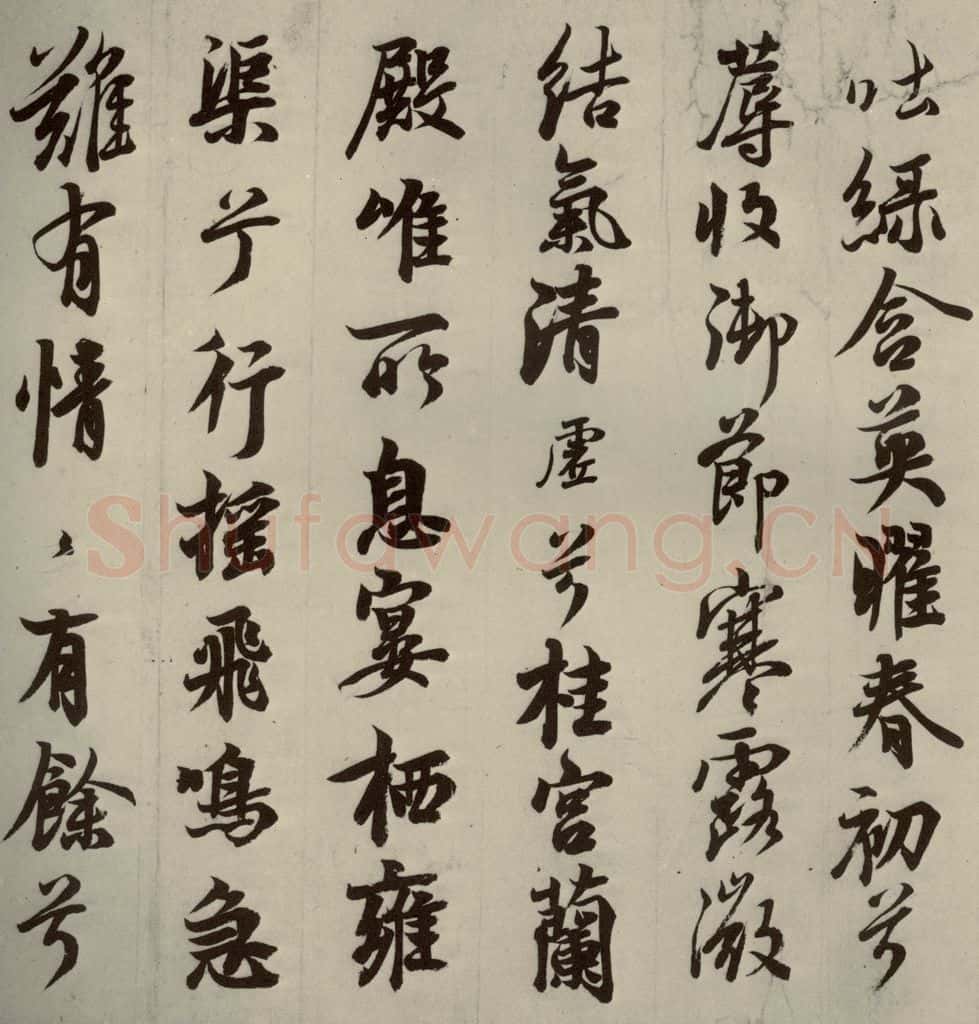 吐綠含英曜春初兮
蓐收御節寒露微
結氣清虛兮桂宮蘭
殿唯所息宴栖雍
渠兮行搖飛鳴急
難有情〻有餘兮
Shufawang.CN